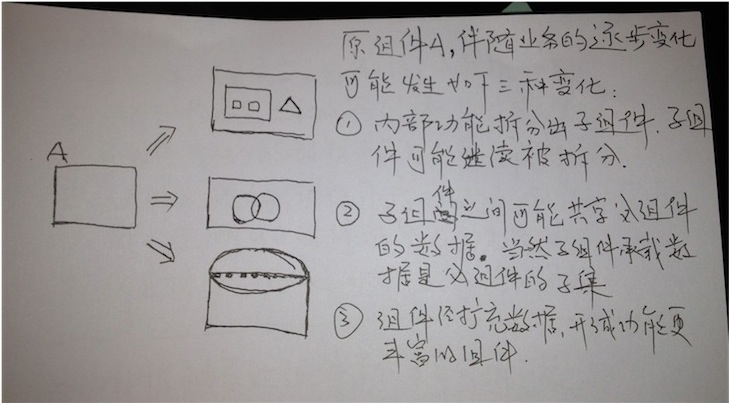 A
原组件A,伴随业务的逐步变化
可能发生如下三种变化:
① 内部功能拆分出子组件.子组
件可能继续被拆分.
② 子组件之间可能共享父组件
的数据。当然子组件承载数
据是父组件的子集
③ 组件经扩充数据,形成功能更
丰富的组件.